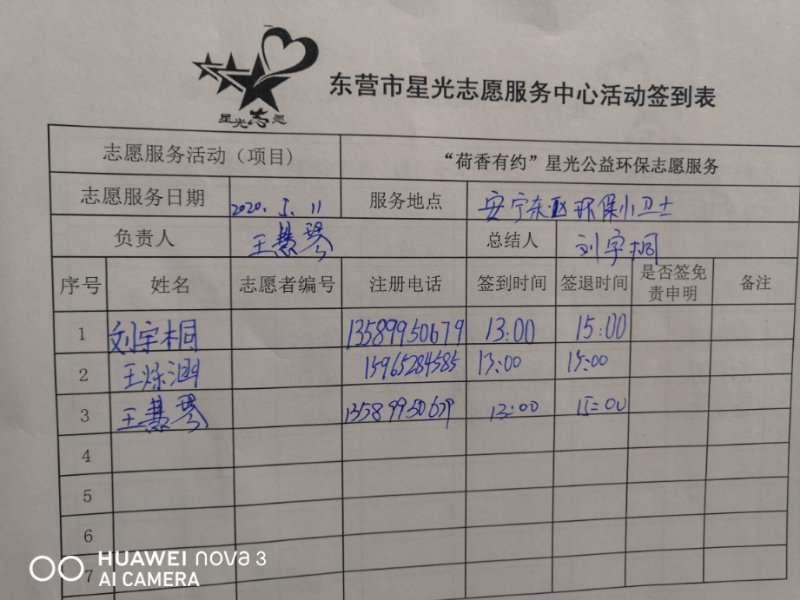 星光志愿
东营市星光志愿服务中心活动签到表
志愿服务活动（项目） “荷香有约”星光公益环保志愿服务
志愿服务日期 2020.5.11 服务地点 安宁东区环保小卫士
负责人 王慧琴 总结人 刘宇桐
序号 姓名 志愿者编号 注册电话 签到时间 签退时间 是否签免责申明 备注
1 刘宇桐 13589950679 13:00 15:00
2 王烁涵 15965284585 13:00 15:00
3 王慧琴 13589950679 13:00 15:00
4
5
6
7
HUAWEI nova 3
AI CAMERA